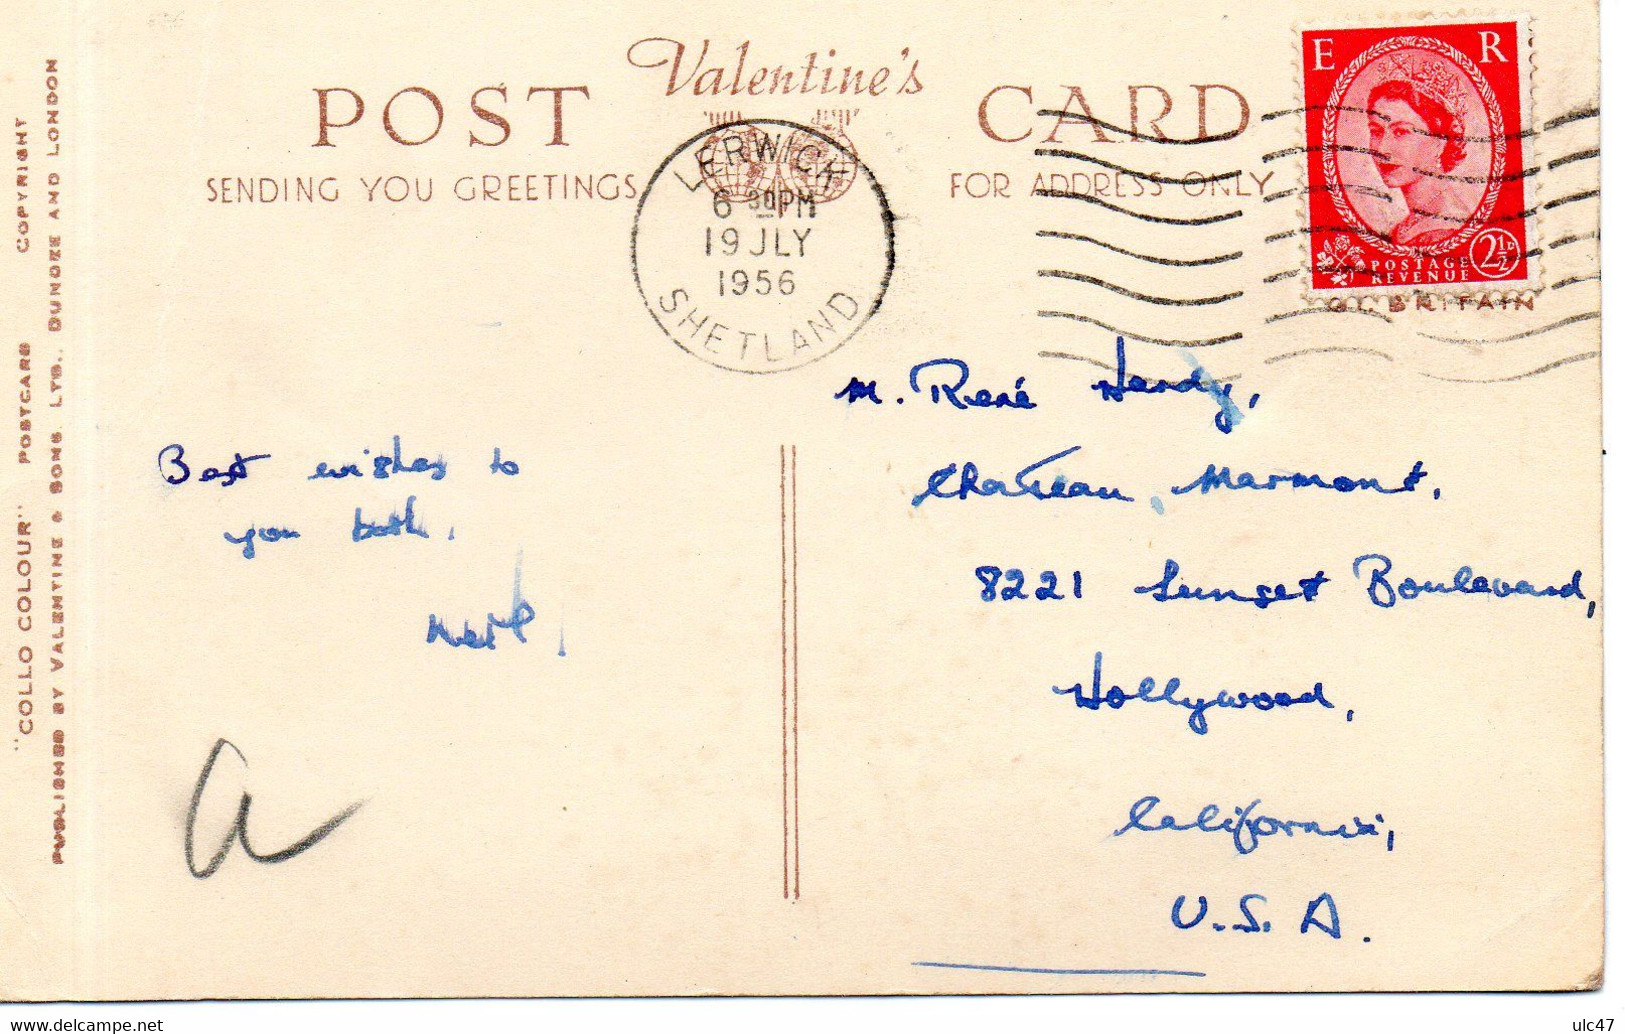 "COLLO COLOUR" POSTCARD COPYRIGHT
PUBLISHED BY VALENTINE & SONS, LTD., DUNDEE AND LONDON
POST Valentine's CARD
SENDING YOU GREETINGS FOR ADDRESS ONLY
LERWICK
6 30PM
19 JLY
1956
SHETLAND
E R
POSTAGE
REVENUE 2½D
GT. BRITAIN
Best wishes to
you both.
Neil.
a
M. René Hardy,
Chateau, Marmont.
8221 Sunset Boulevard,
Hollywood,
California,
U.S.A.
ulc47